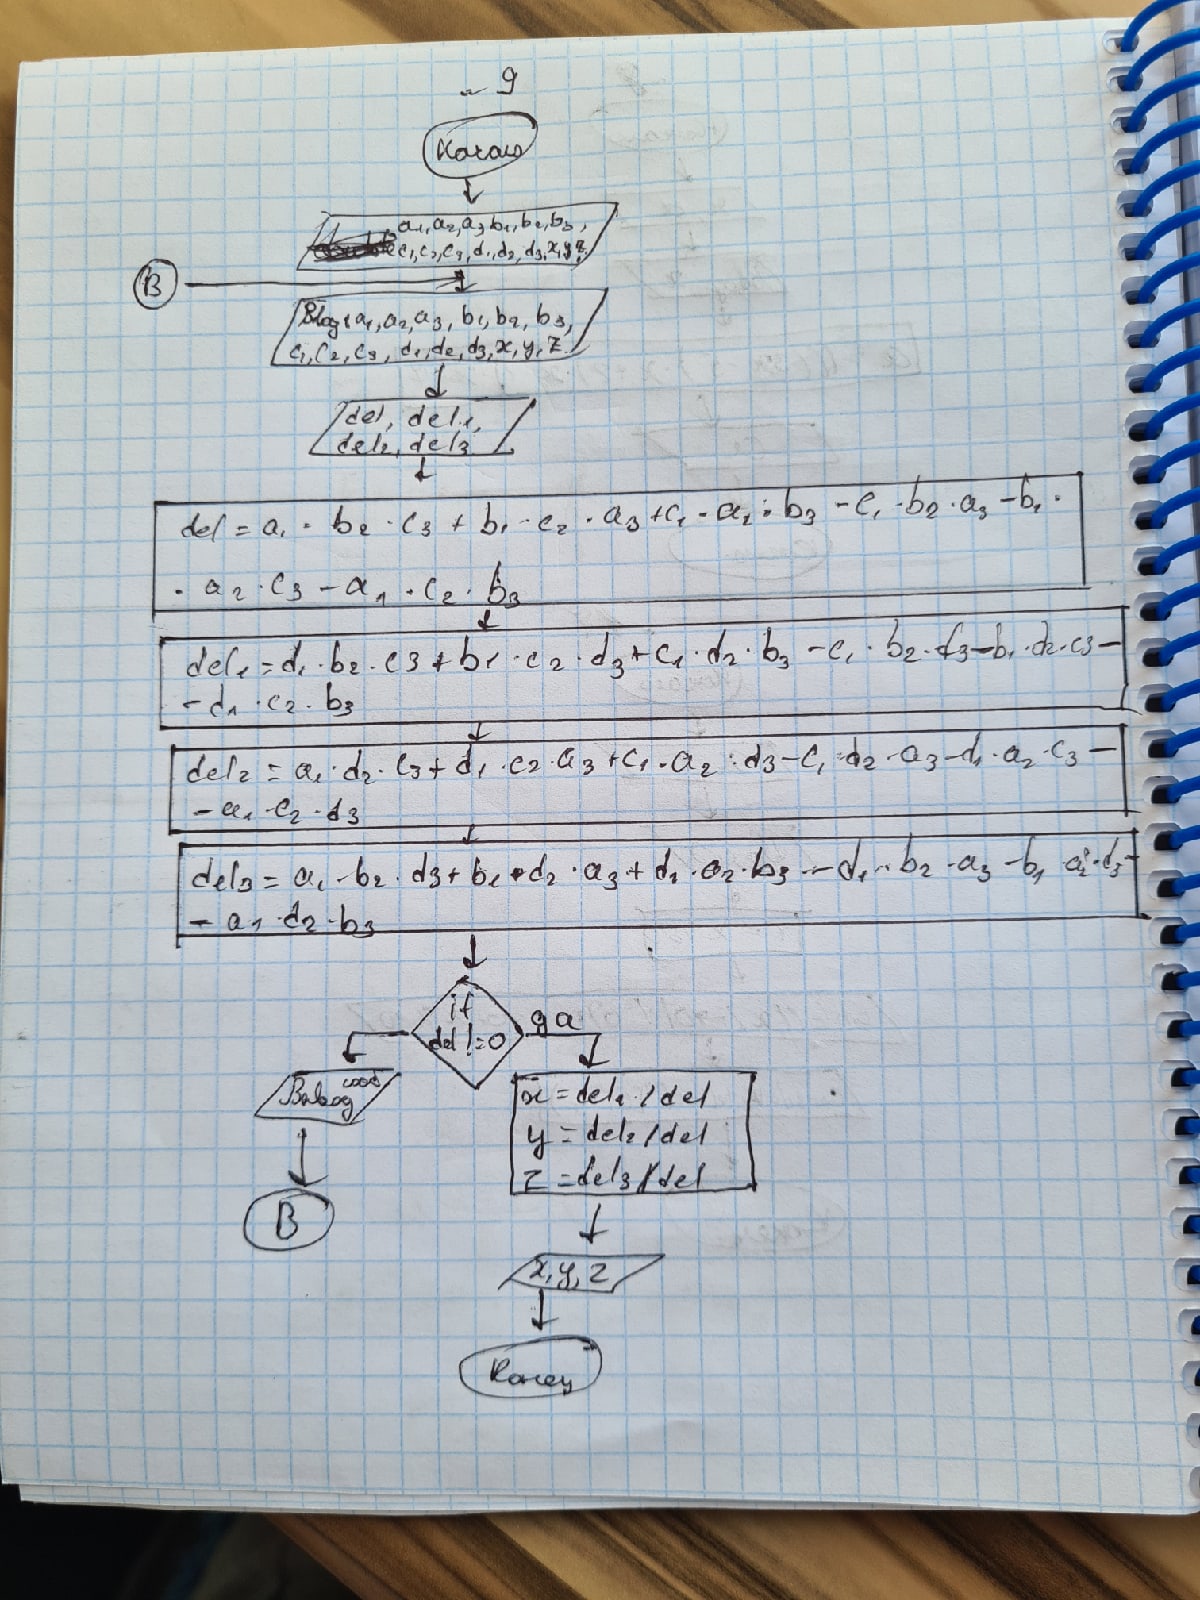 ~ 9
Начало
a1, a2, a3 b1, b2, b3,
c1, c2, c3, d1, d2, d3, x, y, z
B
Ввод a1, a2, a3, b1, b2, b3,
c1, c2, c3, d1, d2, d3, x, y, z
del, del1,
del2, del3
del = a1 · b2 · c3 + b1 · c2 · a3 + c1 · a2 · b3 - c1 · b2 · a3 - b1 ·
· a2 · c3 - a1 · c2 · b3
del1 = d1 · b2 · c3 + b1 · c2 · d3 + c1 · d2 · b3 - c1 · b2 · d3 - b1 · d2 · c3 -
- d1 · c2 · b3
del2 = a1 · d2 · c3 + d1 · c2 · a3 + c1 · a2 · d3 - c1 · d2 · a3 - d1 · a2 · c3 -
- a1 · c2 · d3
del3 = a1 · b2 · d3 + b1 · d2 · a3 + d1 · a2 · b3 - d1 · b2 · a3 - b1 · a2 · d3 -
- a1 · d2 · b3
if
del != 0
да
Вывод
x = del1 / del
y = del2 / del
z = del3 / del
B
x, y, z
Конец